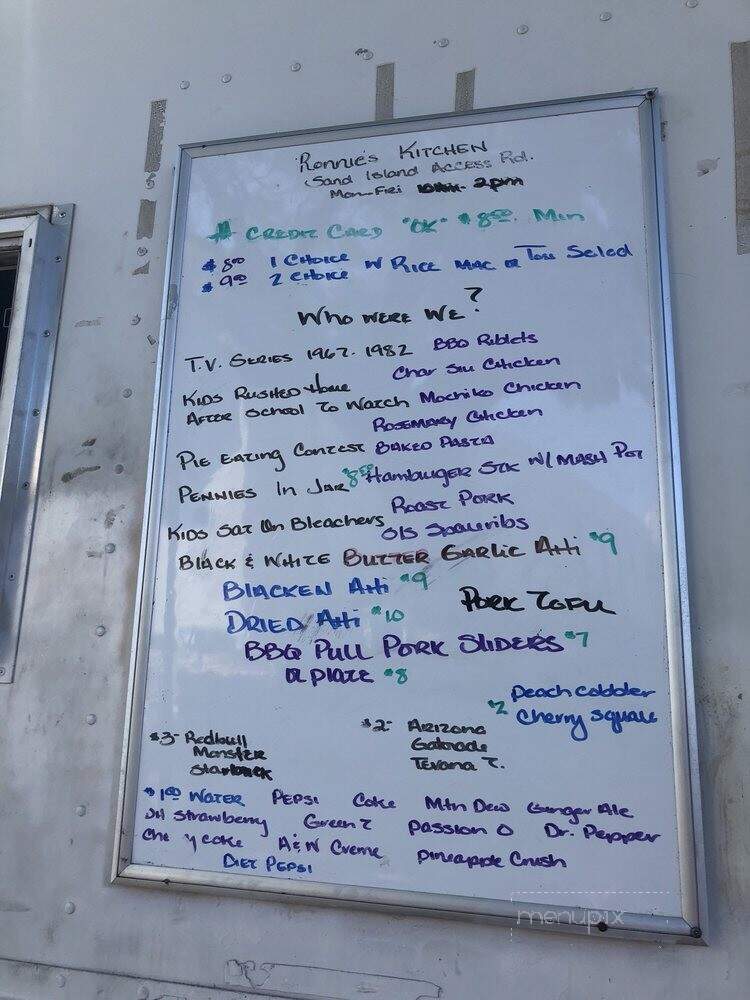 Ronnie's Kitchen
Sand Island Access Rd.
Mon-Fri 10am- 2pm
# Credit Card "OK" $8.50 Min
$8.00 1 Choice
$9.00 2 Choice w Rice Mac or Toss Salad
Who were we?
T.V. Series 1967-1982 BBQ Riblets
Char Siu Chicken
Kids Rushed Home
After School To Watch Mochiko Chicken
Rosemary Chicken
Pie Eating Contest Baked Pasta
Pennies In Jar $8.50 Hamburger Stk w/ Mash Pot
Roast Pork
Kids Sat On Bleachers
Spareribs
Black & White Butter Garlic Ahi $9
Blacken Ahi $9
Pork Tofu
Dried Ahi $10
BBQ Pull Pork Sliders $7
or plate $8
Peach Cobbler
$2 Cherry Square
$3- Redbull
Monster
Starbuck
$2- Arizona
Gatorade
Tevana T.
$1.00 Water Pepsi Coke Mtn Dew Ginger Ale
Strawberry Green T Passion O Dr. Pepper
Che y Coke A&W Creme Pineapple Crush
Diet Pepsi
menupix